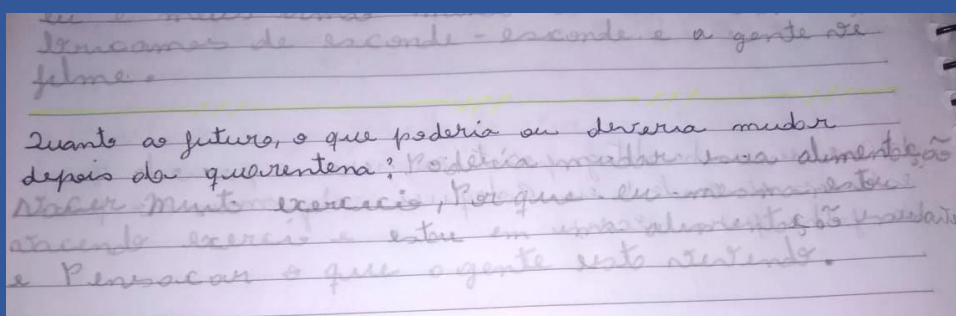 eu e meus irmãos
brincamos de esconde-esconde e a gente ve
filme.
Quanto ao futuro, o que poderia ou deveria mudar
depois da quarentena? Poderia mudar sua alimentação
muito exercicio, Porque eu mesma estou
estou em uma alimentação saudavel
e o que a gente esta vivendo.